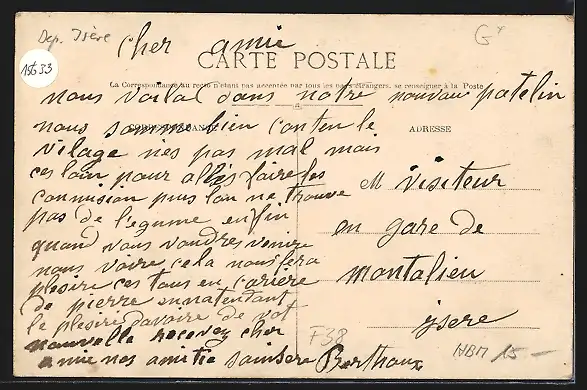 Dep. Isère
15633
G
cher amie
CARTE POSTALE
La Correspondance au recto n'étant pas acceptée par tous les pays étrangers, se renseigner à la Poste
nous voilat dans notre nouvau patelin
nous somme bien conten le
CORRESPONDANCE
ADRESSE
vilage nes pas mal mais
ces loin pour allés faire les
commision puis lon ne trouve
pas de l'egume enfin
quand vous voudres venire
nous voire cela nous fera
plesire ces tous en cariere
de pierre en natendant
le plesire davoire de vot
nouvelle recevez cher
amie nos amitie sainsere Berthaux
M visiteur
en gare de
montalieu
ysere
F38
HBM 15-